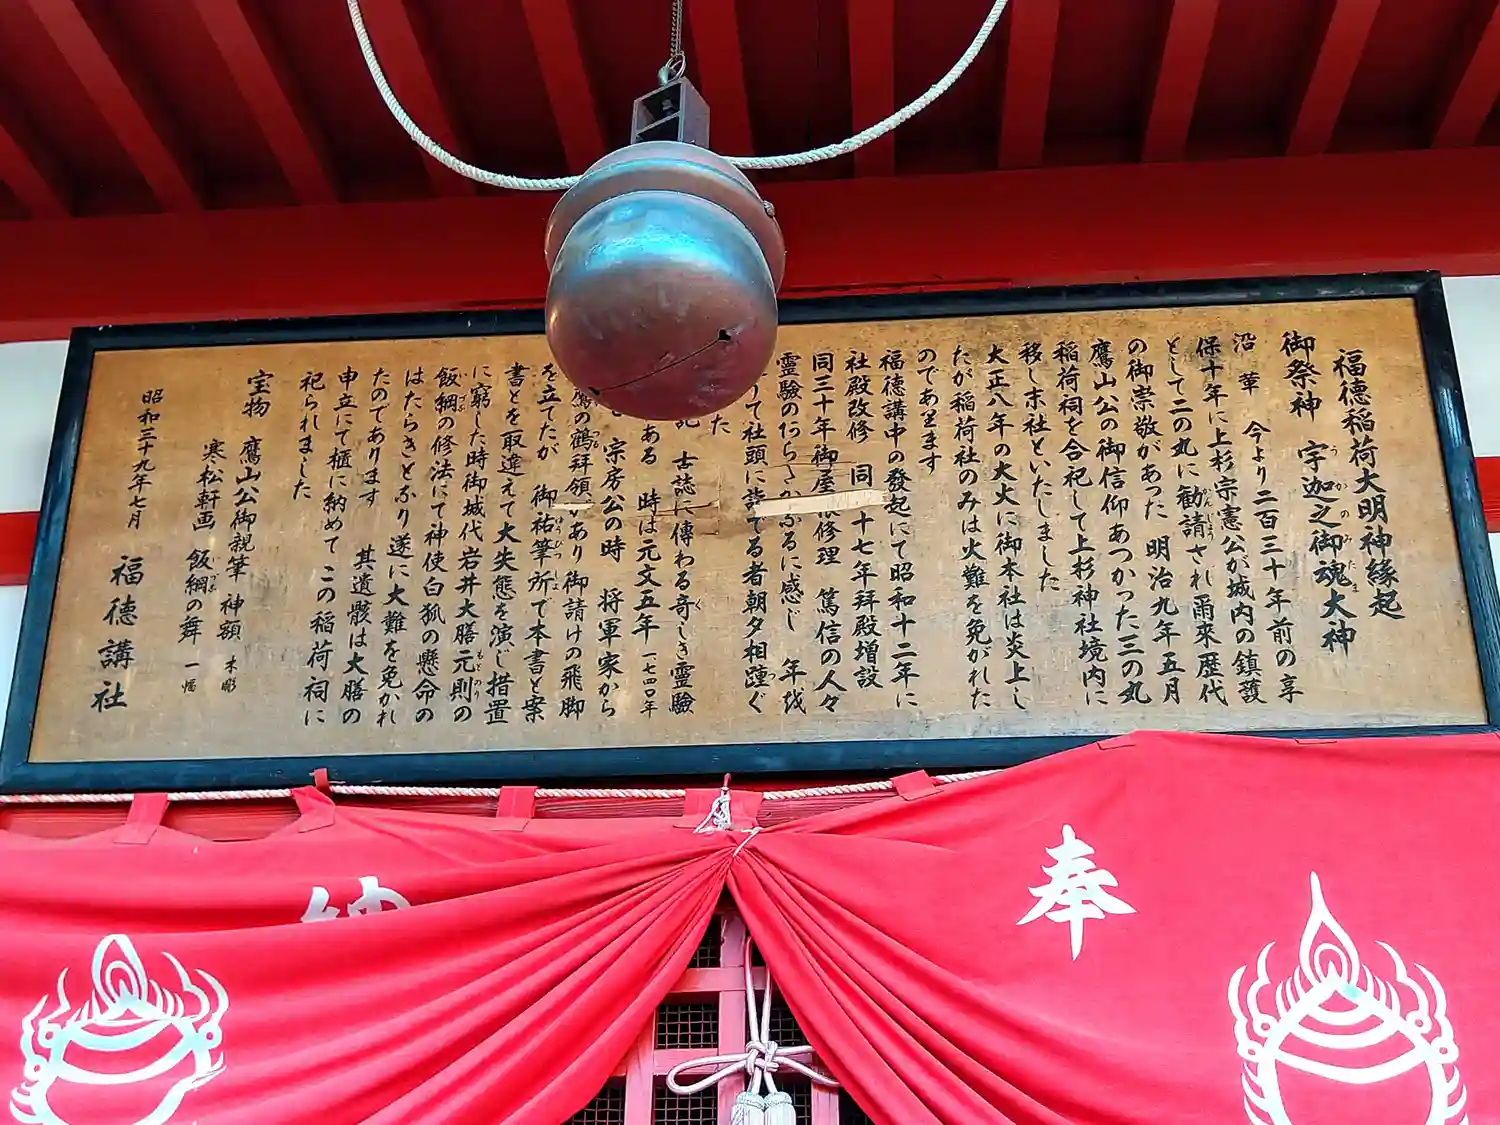 福德稲荷大明神縁起
御祭神 宇迦之御魂大神
沿革 今より二百三十年前の享
保十年に上杉宗憲公が城内の鎮護
として二の丸に勧請され爾來歴代
の御崇敬があつた 明治九年五月
鷹山公の御信仰あつかつた三の丸
稲荷祠を合祀して上杉神社境内に
移し末社といたしました
大正八年の大火に御本社は炎上し
たが稲荷社のみは火難を免がれた
のであります
福德講中の發起にて昭和十二年に
社殿改修 同 十七年拜殿増設
同三十年御屋 修理 篤信の人々
靈驗の たかなるに感じ 年を
りて社頭に詣でる者朝夕相踵ぐ
た
記 古誌に傳わる奇しき靈驗
ある 時は元文五年 一七四〇年
宗房公の時 将軍家から
鷹の鶴拜領 あり御請けの飛脚
を立てたが 御祐筆所で本書と案
書とを取違えて大失態を演じ措置
に窮した時御城代岩井大膳元則の
飯綱の修法にて神使白狐の懸命の
はたらきとなり遂に大難を免かれ
たのであります 其遺骸は大膳の
申立にて櫃に納めてこの稲荷祠に
祀られました
宝物 鷹山公御親筆 神額 木彫
寒松軒画 飯綱の舞 一幅
昭和三十九年七月 福德講社
奉
納